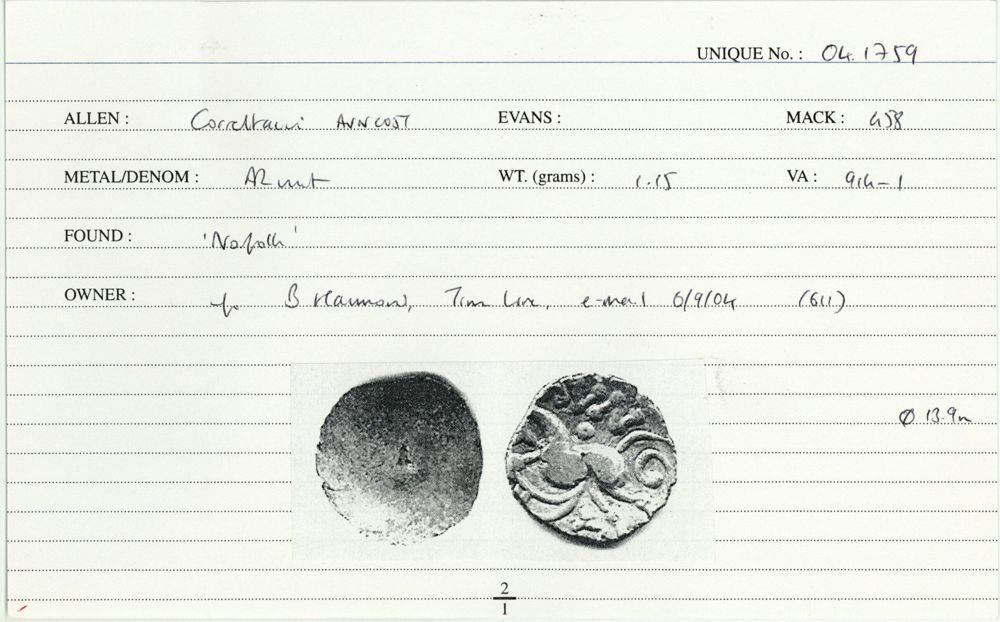 UNIQUE No. : 04.1759
ALLEN : Correltauvi AVNCOST EVANS : MACK : 458
METAL/DENOM : AR unit WT. (grams) : 1.15 VA : 914-1
FOUND : 'Norfolk'
OWNER : B Hammond, Tim e-mail 6/9/04 (611)
Ø 13.9m
2
1